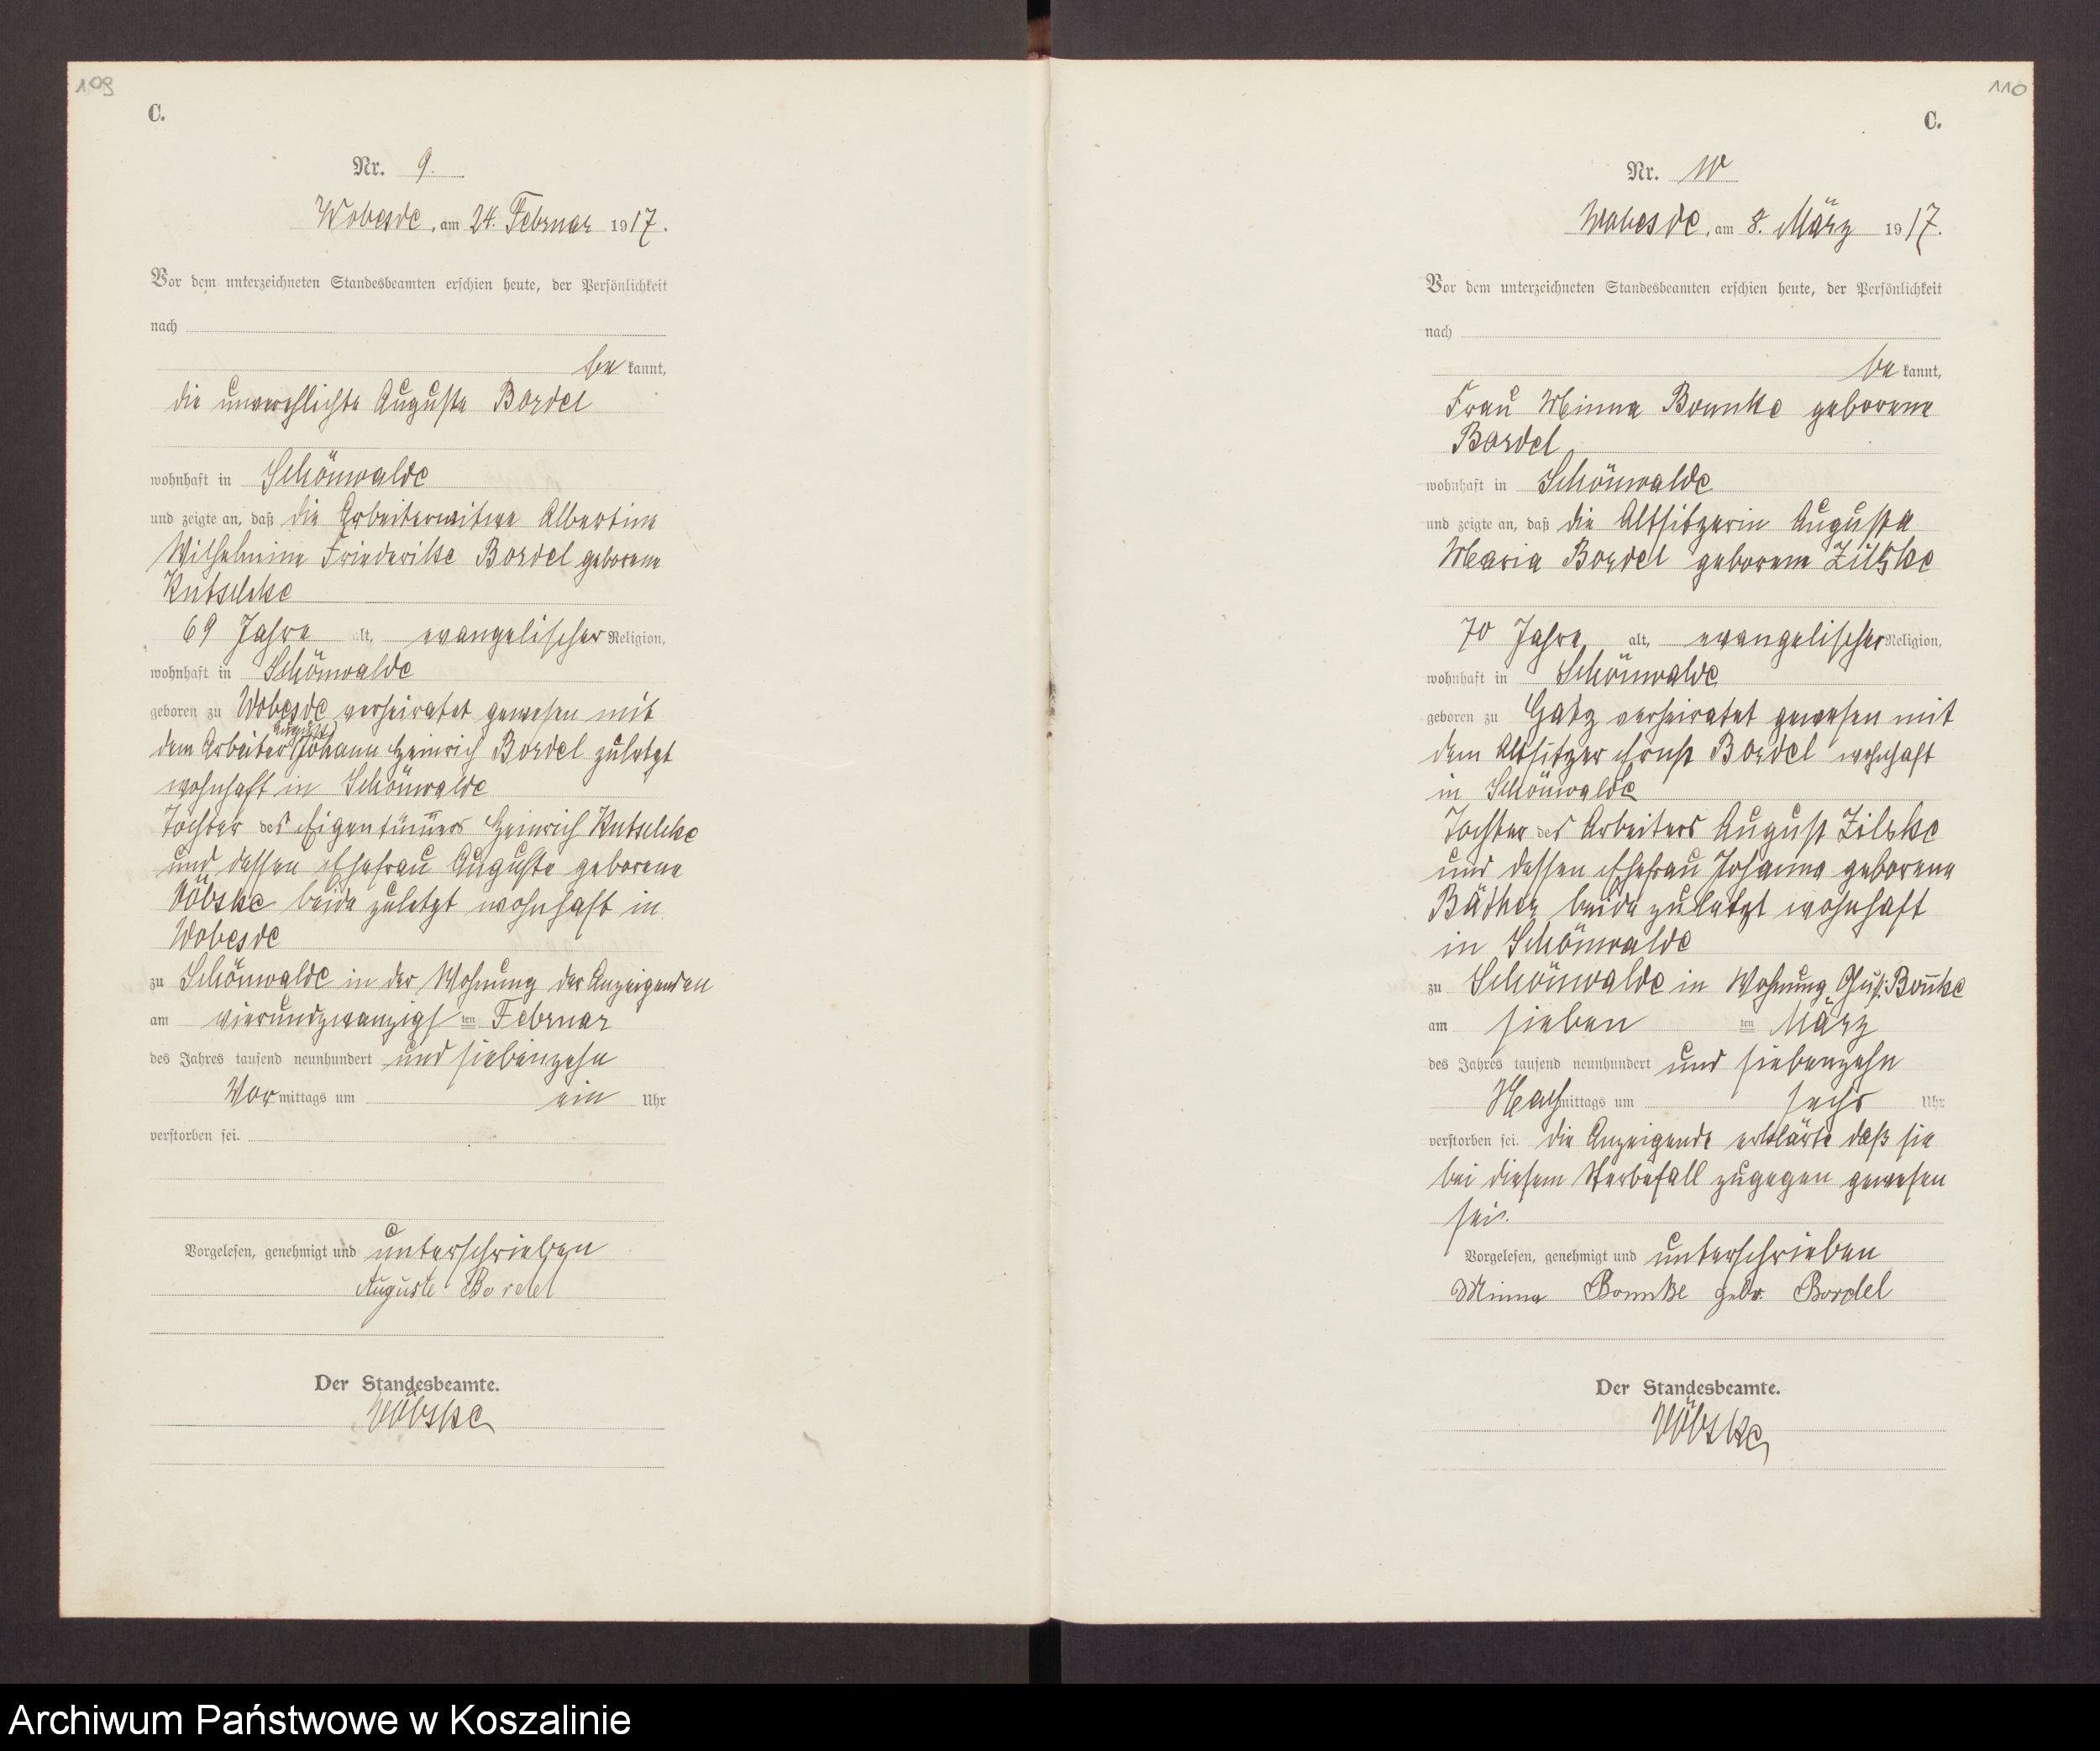 109
C.
Nr. 9.
Wobesde, am 24. Februar 1917.
Vor dem unterzeichneten Standesbeamten erschien heute, der Persönlichkeit
nach
be kannt,
die unverehlichte Auguste Bordel
wohnhaft in Schönwalde
und zeigte an, daß die Arbeiterwitwe Albertine
Wilhelmine Friederike Bordel geborene
Kutschke
69 Jahre alt, evangelischer Religion,
wohnhaft in Schönwalde
geboren zu Wobesde verheiratet gewesen mit
August
dem Arbeiter Johann Heinrich Bordel zuletzt
wohnhaft in Schönwalde
Tochter des Eigentümers Heinrich Kutschke
und dessen Ehefrau Auguste geborene
Völzke beide zuletzt wohnhaft in
Wobesde
zu Schönwalde in der Wohnung der Anzeigenden
am vierundzwanzigsten Februar
des Jahres tausend neunhundert und siebenzehn
Vormittags um ein Uhr
verstorben sei.
Vorgelesen, genehmigt und unterschrieben
Auguste Bordel
Der Standesbeamte.
110
C.
Nr. 10
Wobesde, am 8. März 1917.
Vor dem unterzeichneten Standesbeamten erschien heute, der Persönlichkeit
nach
be kannt,
Frau Minna Bonnke geborene
Bordel
wohnhaft in Schönwalde
und zeigte an, daß die Altsitzerin Auguste
Maria Bordel geborene Zilske
70 Jahre alt, evangelischer Religion,
wohnhaft in Schönwalde
geboren zu Gatz verheiratet gewesen mit
dem Altsitzer Ernst Bordel wohnhaft
in Schönwalde
Tochter des Arbeiters August Zilske
und dessen Ehefrau Johanna geborene
beide zuletzt wohnhaft
in Schönwalde
zu Schönwalde in Wohnung Gust. Bonnke
am siebenten März
des Jahres tausend neunhundert und siebenzehn
Nachmittags um sechs Uhr
verstorben sei. die Anzeigende erklärte daß sie
bei diesem Sterbefall zugegen gewesen
sei.
Vorgelesen, genehmigt und unterschrieben
Minna Bonnke geb. Bordel
Der Standesbeamte.
Archiwum Państwowe w Koszalinie